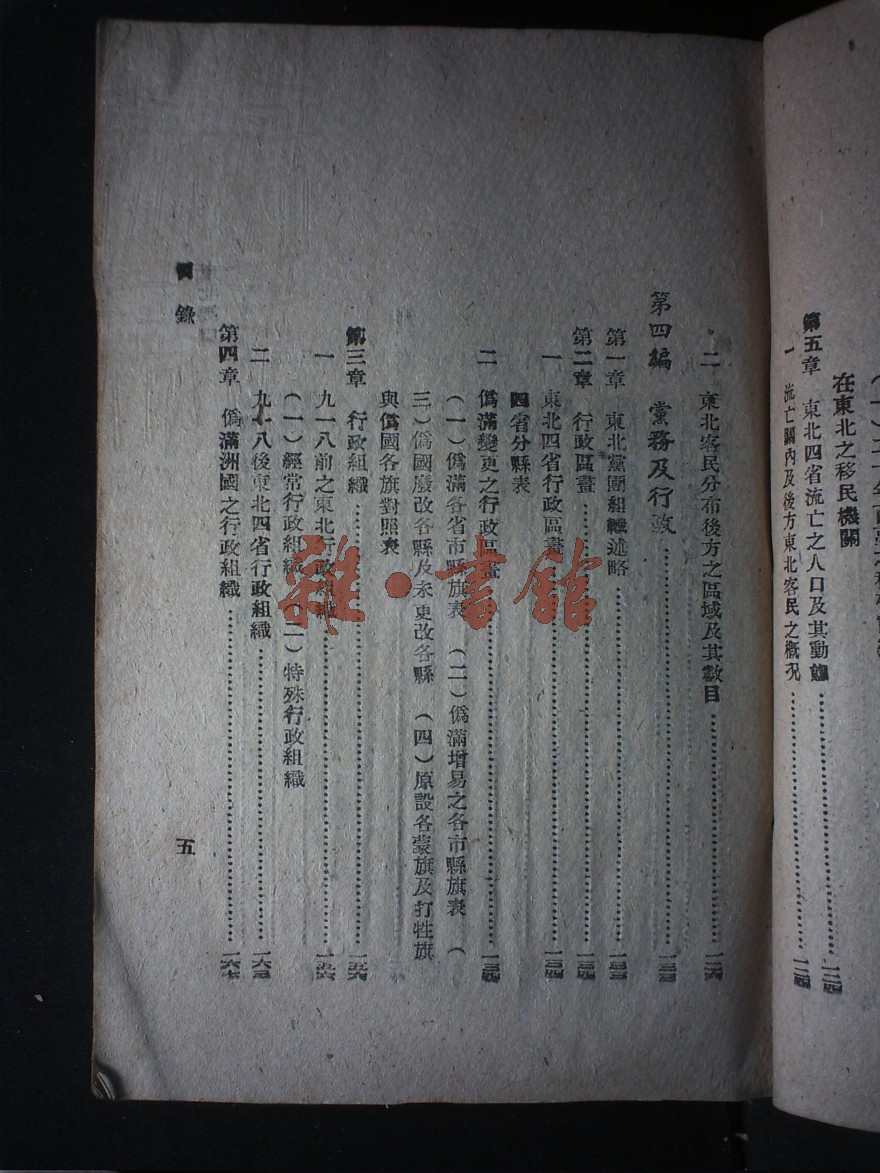 在東北之移民機關
第五章 東北四省流亡之人口及其動態……一二四
一 流亡關內及後方東北客民之概況……一二四
二 東北客民分布後方之區域及其數目……一二六
第四編 黨務及行政……一三三
第一章 東北黨團組織述略……一三三
第二章 行政區畫……一三四
一 東北四省行政區畫……一三四
四省分縣表
二 僞滿變更之行政區畫……一三四
(一)僞滿各省市縣旗表 (二)僞滿增易之各市縣旗表 (
三)僞國廢改各縣及未更改各縣 (四)原設各蒙旗及打牲旗
與僞國各旗對照表
第三章 行政組織……一五六
一 九一八前之東北行政組織……一五六
(一)經常行政組織 (二)特殊行政組織
二 九一八後東北四省行政組織……一六三
第四章 僞滿洲國之行政組織……一六七
目錄
五
雜·書館